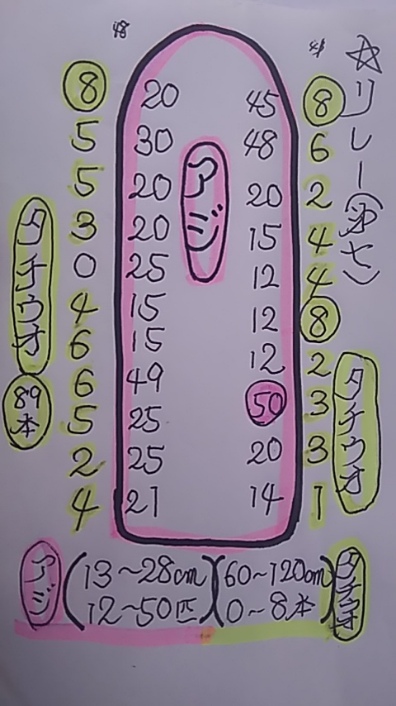 ☆リレー(オセ)
48
41
8 20 45 8
5 30 48 6
5 20 20 2
3 20 15 4
0 25 12 4
4 15 12 8
6 15 12 2
6 49 50 3
5 25 20 3
2 25 20
4 21 14 1
アジ
タチウオ
89本
タチウオ
アジ (13~28cm 12~50匹)(60~120cm 0~8本) タチウオ